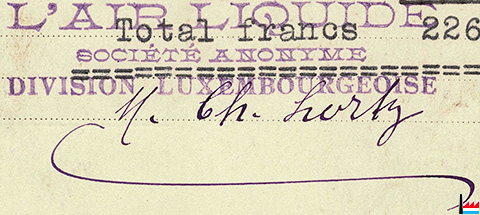 L'AIR LIQUIDE
Total francs 226
SOCIÉTÉ ANONYME
DIVISION LUXEMBOURGEOISE
M. Ch. Lorky